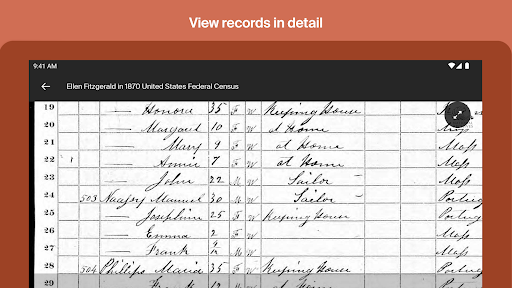 View records in detail
9:41 AM
Ellen Fitzgerald in 1870 United States Federal Census
19 — Honora 35 F W Keeping House
20 — Margaret 10 F W at Home Mass
21 — Mary 9 F W at Home Mass
22 1 — Annie 7 F W at Home Mass
23 — John 22 M W Sailor Mass
24 503 Manuel 30 M W Sailor Portug
25 — Josephine 25 F W Keeping House Portug
26 — Emma 2 F W Mass
27 — Frank M W Mass
28 504 Phillips Maria 35 F W Keeping House Portug
— Frank 12 M W